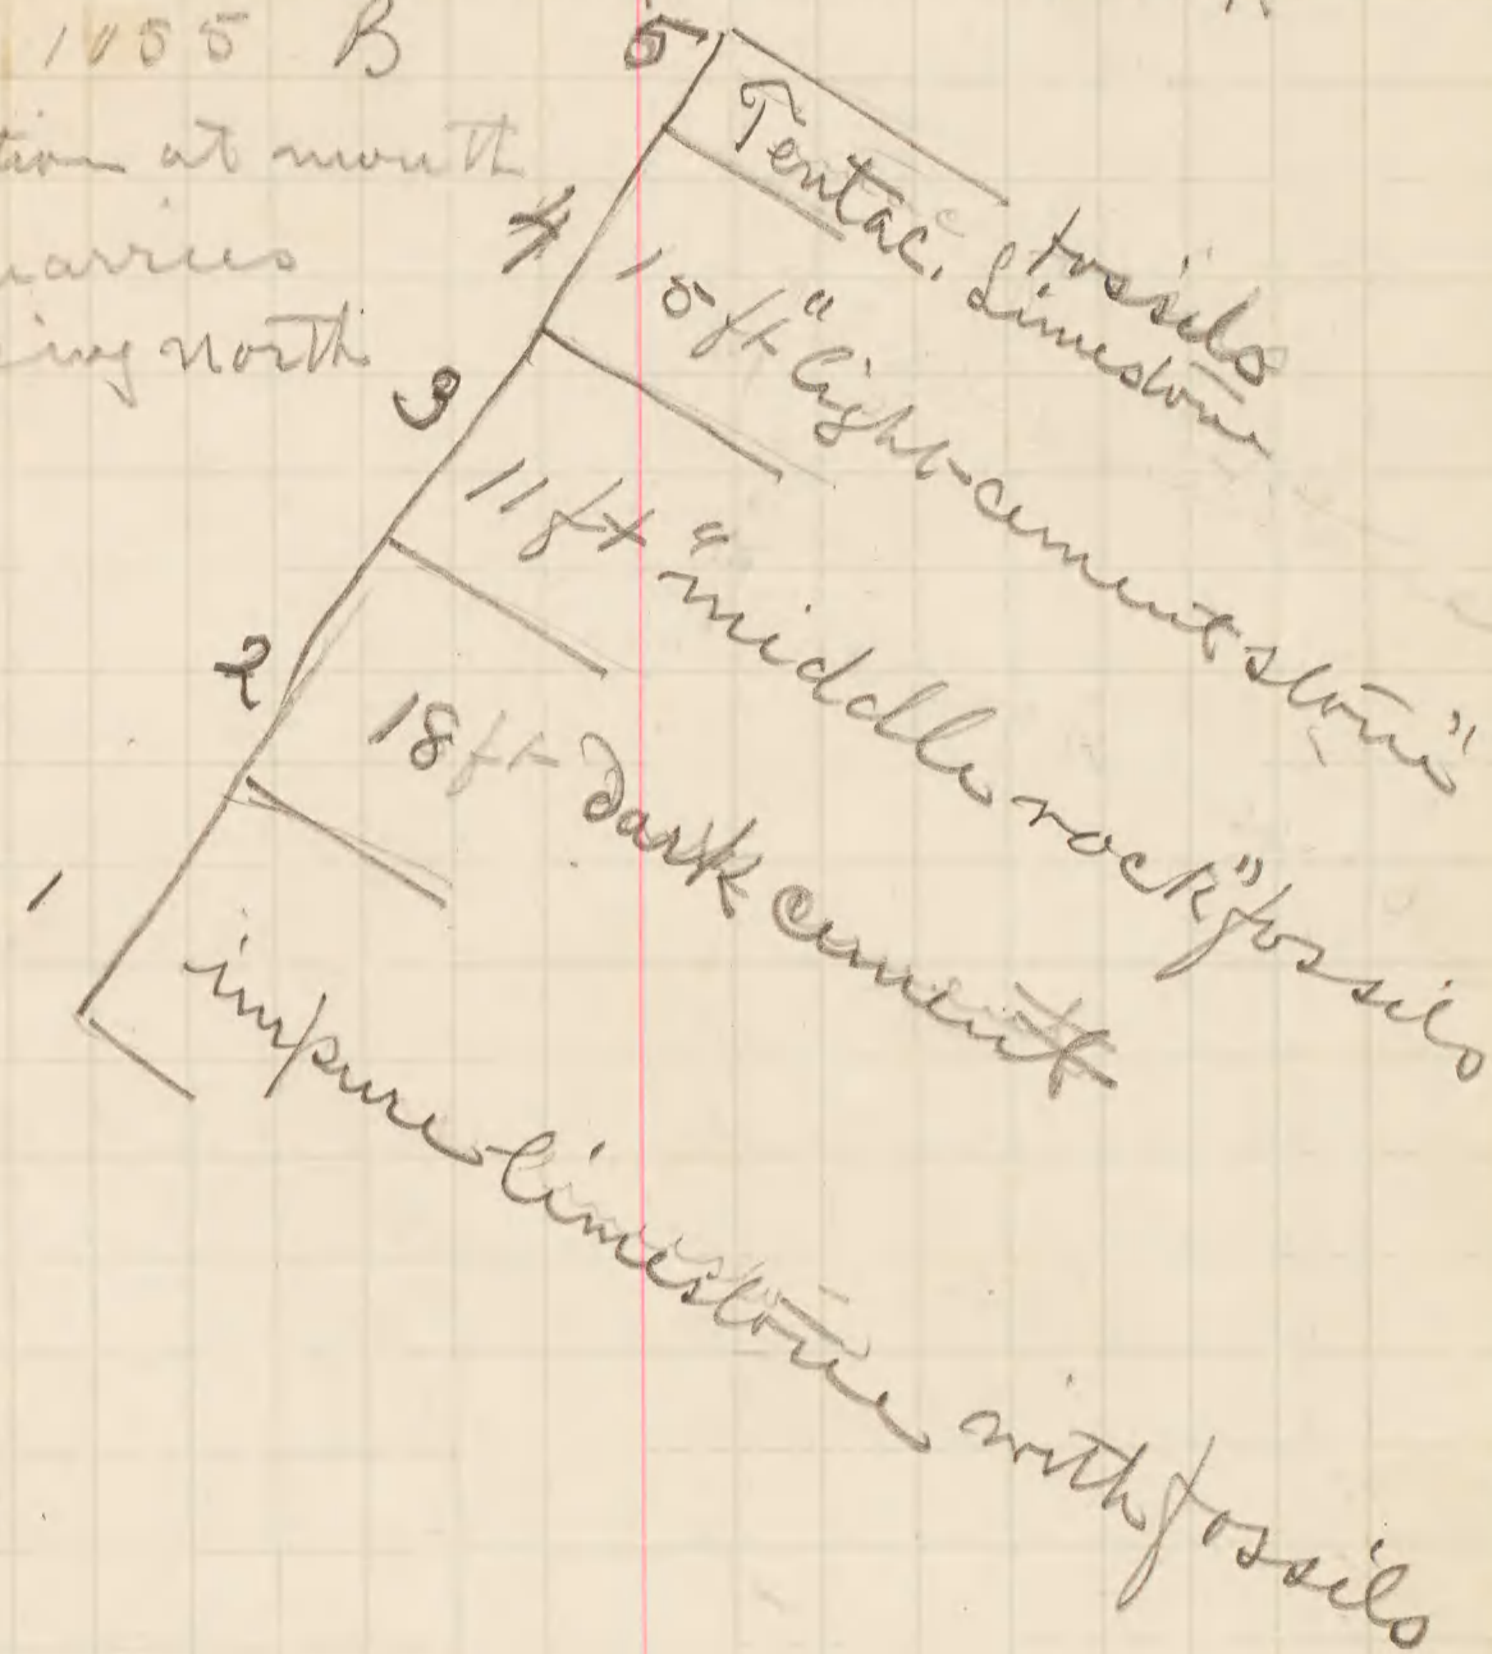 1055 B
at mouth
north
5
Tentac. Limestone
fossils
4
15 ft "light-cement stone"
3
11 ft "middle rock" fossils
2
18 ft Dark Cement
1
impure limestone with fossils